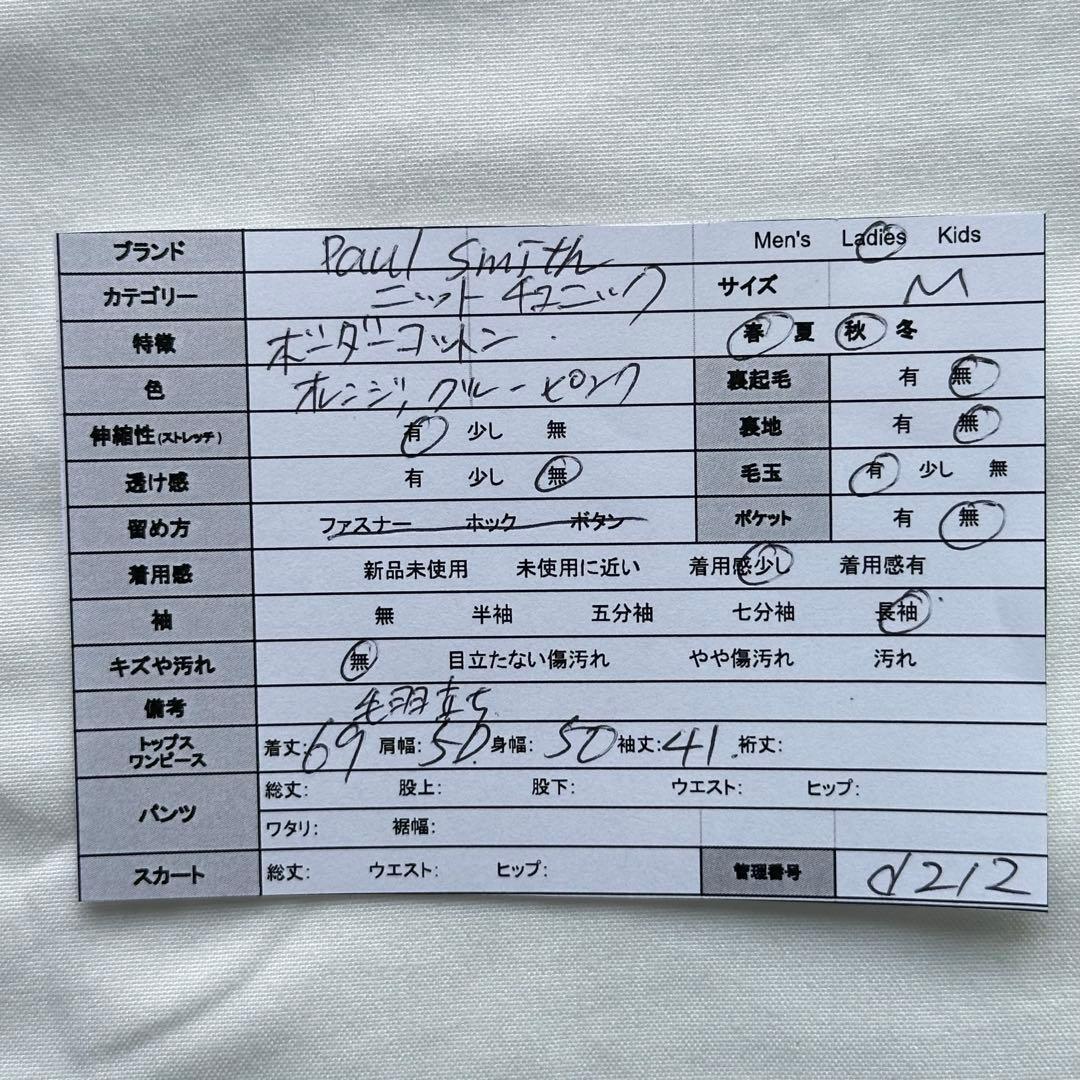 ブランド Paul Smith Men's Ladies Kids
カテゴリー ニットチュニック サイズ M
特徴 ボーダーコットン 春 夏 秋 冬
色 オレンジ, ブルー ピンク 裏起毛 有 無
伸縮性(ストレッチ) 有 少し 無 裏地 有 無
透け感 有 少し 無 毛玉 有 少し 無
留め方 ファスナー ホック ボタン ポケット 有 無
着用感 新品未使用 未使用に近い 着用感少し 着用感有
袖 無 半袖 五分袖 七分袖 長袖
キズや汚れ 無 目立たない傷汚れ やや傷汚れ 汚れ
備考 毛羽立ち
トップス
ワンピース
着丈:69 肩幅:50 身幅:50 袖丈:41 裄丈:
パンツ
総丈: 股上: 股下: ウエスト: ヒップ:
ワタリ: 裾幅:
スカート 総丈: ウエスト: ヒップ: 管理番号 d212